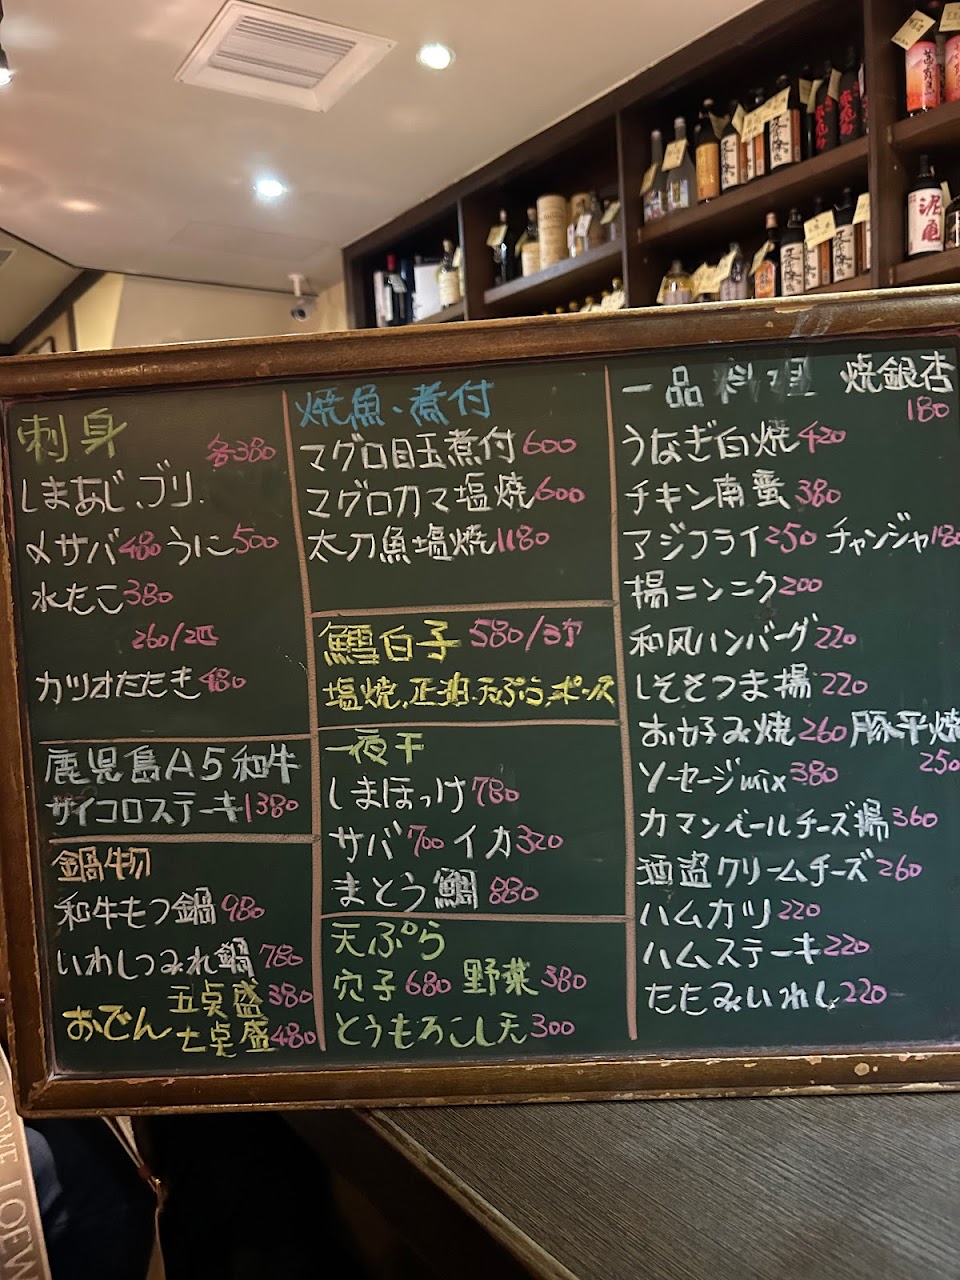 刺身
各380
しまあじ、ブリ、
〆サバ480 うに500
水たこ380
260/2匹
カツオたたき480
鹿児島A5和牛
サイコロステーキ1380
鍋物
和牛もつ鍋980
いわしつみれ鍋780
おでん 五点盛380
七点盛480
焼魚・煮付
マグロ目玉煮付600
マグロカマ塩焼600
太刀魚塩焼1180
鱈白子580/3ケ
塩焼、正油、天ぷら、ポンズ
一夜干
しまほっけ780
サバ700 イカ320
まとう鯛880
天ぷら
穴子680 野菜380
とうもろこし天300
一品料理 焼銀杏
180
うなぎ白焼420
チキン南蛮380
アジフライ250 チャンジャ180
揚ニンニク200
和风ハンバーグ220
しそさつま揚220
お好み焼260 豚平焼
250
ソーセージmix380
カマンベールチーズ揚360
酒盗クリームチーズ260
ハムカツ220
ハムステーキ220
たたみいわし220
泥亀
LOEWE